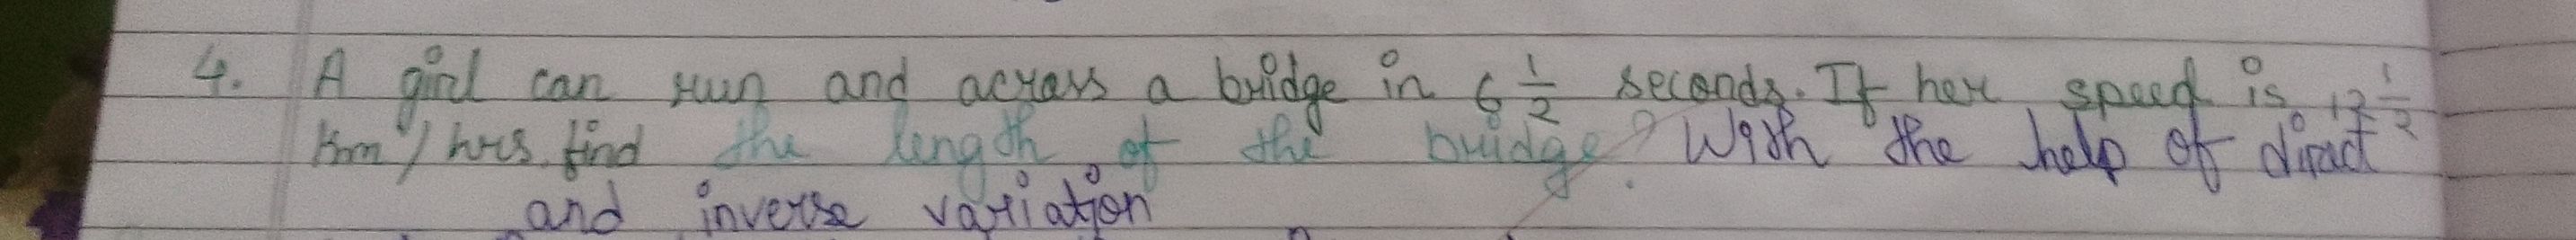 4. A girl can run and across a bridge in 6 1/2 seconds. If her speed is 12 1/2
km/hrs. find the length of the bridge? With the help of diract
and inverse variation